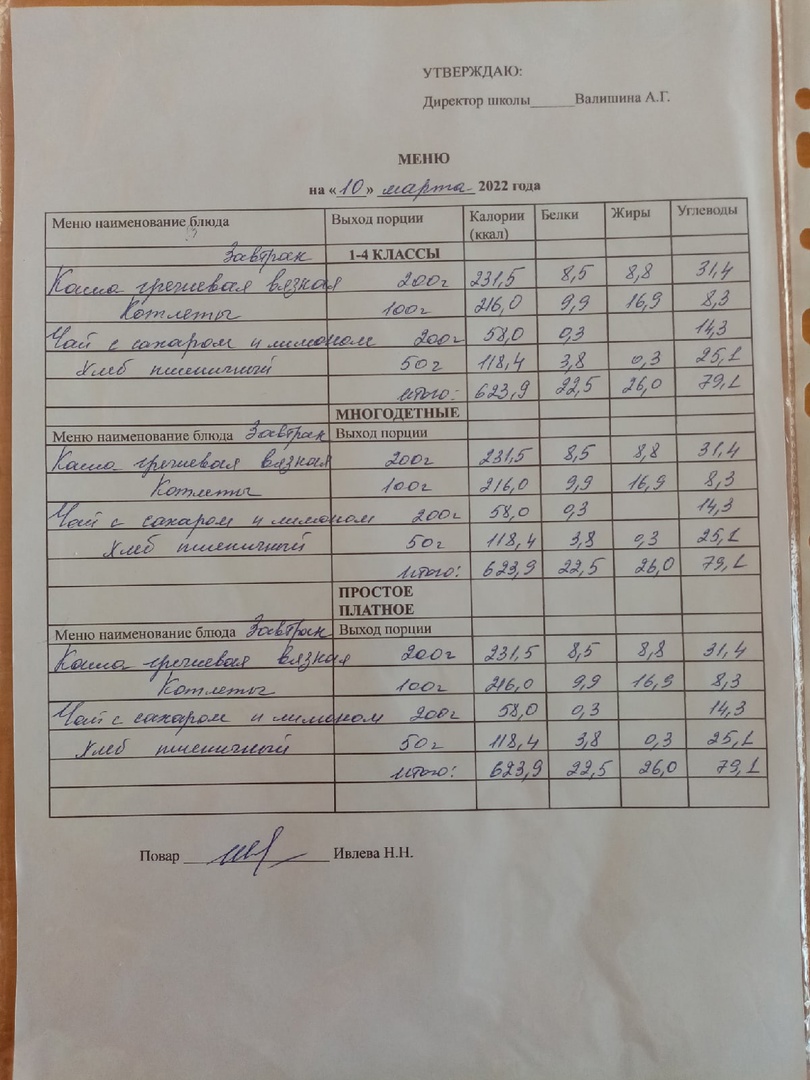 УТВЕРЖДАЮ:
Директор школы______Валишина А.Г.
МЕНЮ
на «10» марта 2022 года
Меню наименование блюда Выход порции Калории (ккал) Белки Жиры Углеводы
Завтрак 1-4 КЛАССЫ
Каша гречневая вязкая 200г 231,5 8,5 8,8 31,4
Котлеты 100г 216,0 9,9 16,9 8,3
Чай с сахаром и лимоном 200г 58,0 0,3 14,3
Хлеб пшеничный 50г 118,4 3,8 0,3 25,1
Итого: 623,9 22,5 26,0 79,1
МНОГОДЕТНЫЕ
Меню наименование блюда Завтрак Выход порции
Каша гречневая вязкая 200г 231,5 8,5 8,8 31,4
Котлеты 100г 216,0 9,9 16,9 8,3
Чай с сахаром и лимоном 200г 58,0 0,3 14,3
Хлеб пшеничный 50г 118,4 3,8 0,3 25,1
Итого: 623,9 22,5 26,0 79,1
ПРОСТОЕ
ПЛАТНОЕ
Меню наименование блюда Завтрак Выход порции
Каша гречневая вязкая 200г 231,5 8,5 8,8 31,4
Котлеты 100г 216,0 9,9 16,9 8,3
Чай с сахаром и лимоном 200г 58,0 0,3 14,3
Хлеб пшеничный 50г 118,4 3,8 0,3 25,1
Итого: 623,9 22,5 26,0 79,1
Повар Ивлева Н.Н.